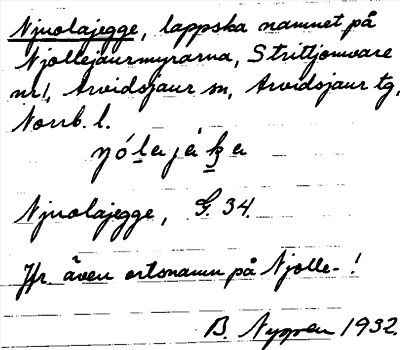 Njuolajegge, lappska namnet på
Njollejaurmyrarna, Strittjomvare
nr 1, Arvidsjaur sn, Arvidsjaur tg,
Norrb. l.
Njuolajegge, G. 34.
Jfr. även ortsnamn på Njolle-!
B. Nygren 1932.